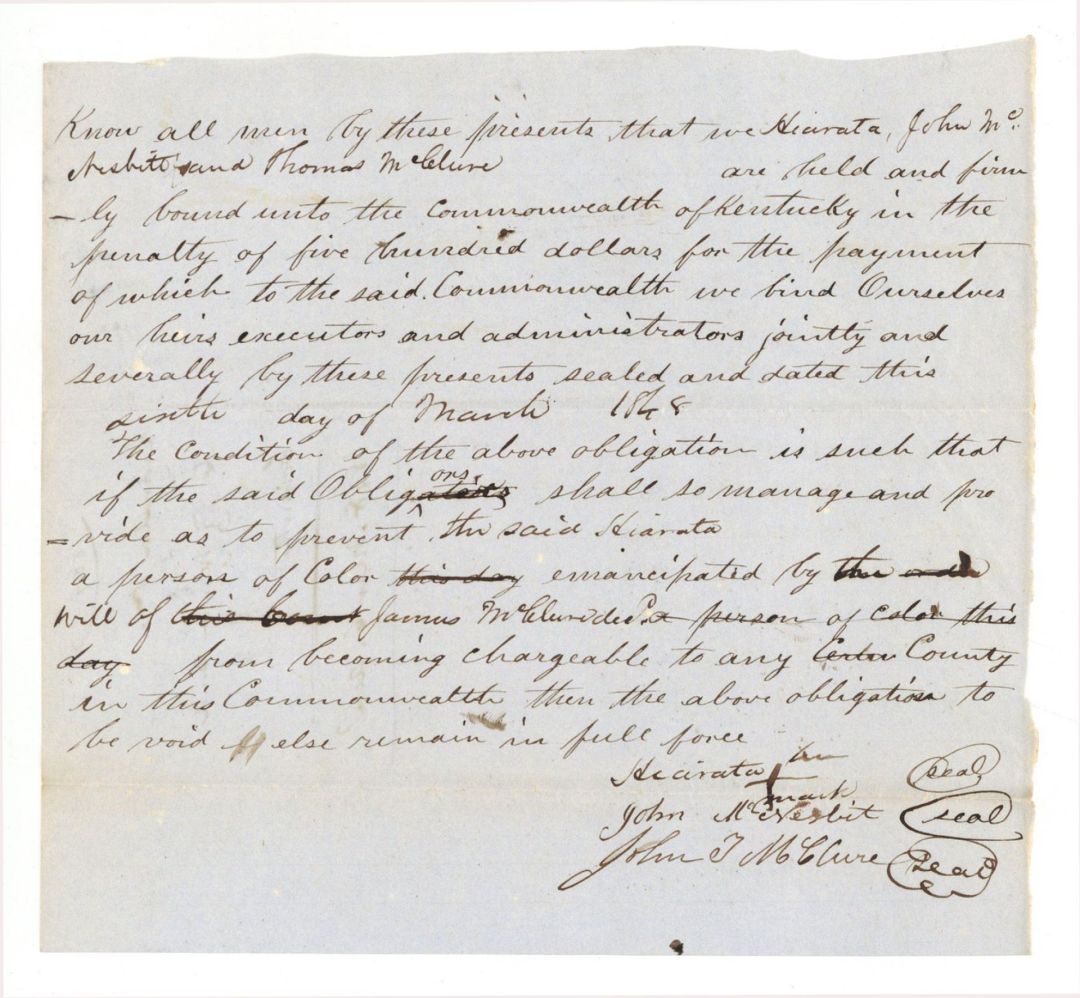 Know all men by these presents that we Hiarata, John Mc.
Nesbitt and Thomas McClure are held and firm
-ly bound unto the Commonwealth of Kentucky in the
penalty of five hundred dollars for the payment
of which to the said Commonwealth we bind Ourselves
our heirs executors and administrators jointly and
severally by these presents sealed and dated this
sixth day of March 1848
The Condition of the above obligation is such that
ors
if the said Obligators shall so manage and pro
=vide as to prevent ^ the said Hiarata
a person of Color this day emancipated by the order
will of this Court James McClure decd. a person of color this
day from becoming chargeable to any County
in this Commonwealth then the above obligation to
be void else remain in full force
Hiarata her seal
mark
John McNesbit seal
John T McClure seal